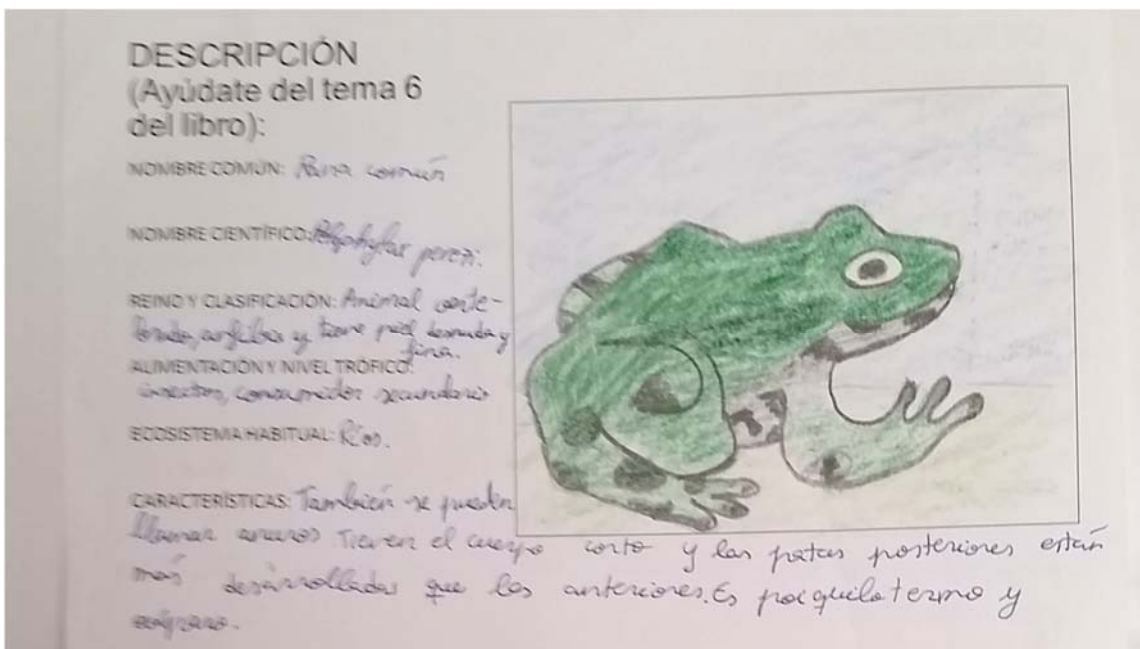 DESCRIPCIÓN
(Ayúdate del tema 6
del libro):
NOMBRE COMÚN: Rana común
NOMBRE CIENTÍFICO: perezi.
REINO Y CLASIFICACIÓN: Animal verte-
brado, anfibio y tiene piel desnuda y
fina.
ALIMENTACIÓN Y NIVEL TRÓFICO:
insectos, consumidor secundario
ECOSISTEMA HABITUAL: Ríos.
CARACTERÍSTICAS: También se pueden
llamar anuros Tienen el cuerpo corto y las patas posteriores están
más desarrolladas que las anteriores. Es poiquilotermo y